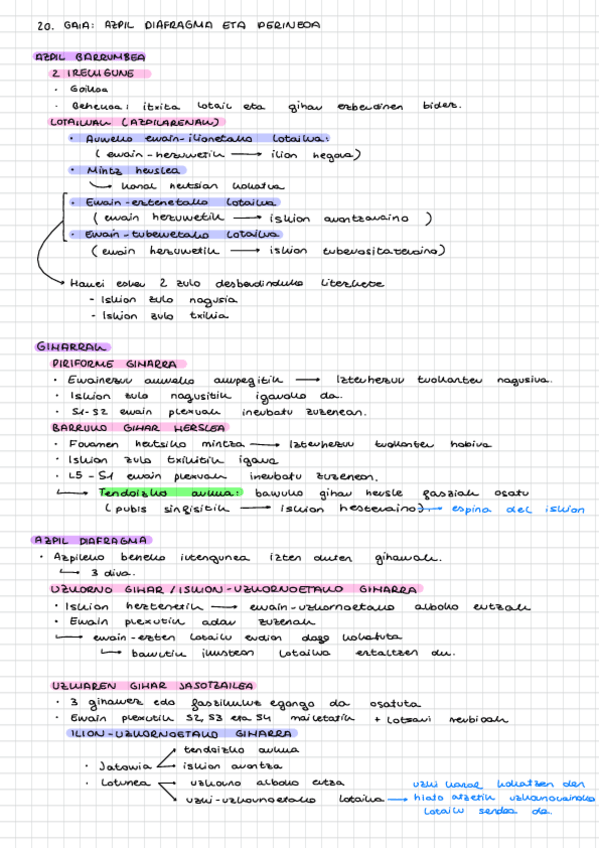 20. GAIA: AZPIL DIAFRAGMA ETA PERINEOA
AZPIL BARRUMBEA
2 IREKIGUNE
· Goikoa
· Behekoa: itxita lotail eta gihar ezberdinen bidez.
LOTAILUAK (AZPILARENAK)
· Aurreko errain-ilionetako lotailua:
(errain-hezurretik → ilion hegora)
· Mintz heuslea
↳ kanal heutsian kokatua
· Errain-eztenetako lotailua
(errain hezurretik → iskion arantzaraino )
· Errain-tuberretako lotailua
(errain hezurretik → iskion tuberositateraino)
Hauei esker 2 zulo desberdinduko literkete
- Iskion zulo nagusia
- Iskion zulo txikia
GIHARRAK
PIRIFORME GIHARRA
· Errainezur aurreko aurpegitik → Izterhezur trokanter nagusira.
· Iskion zulo nagusitik igaroko da.
· S1-S2 errain plexuak inerbatu zuzenean.
BARRUKO GIHAR HERSLEA
· Foramen hertsiko mintza → Izterhezur trokanter hobira
· Iskion zulo txikitik igaro
· L5-S1 errain plexuak inerbatu zuzenean.
↳ Tendoizko arkua: barruko gihar heusle fasziak osatu
(pubis sinfisitik → Iskion hesteraino) → espina del iskion
AZPIL DIAFRAGMA
· Azpileko beheko irtengunea ixten duten giharrak.
↳ 3 dira.
UZKORNO GIHAR / ISKION-UZKORNOETAKO GIHARRA
· Iskion heztenetik → errain-uzkornoetako alboko ertzak
· Errain plexutik adar zuzenak
↳ errain-ezten lotailu ondoan dago kokatuta
↳ barrutik ikustean lotailua estaltzen du.
UZKIAREN GIHAR JASOTZAILEA
· 3 giharrez edo faszikuluz egongo da osatuta
· Errain plexutik S2, S3 eta S4 mailetatik + Lotsari nerbioak
ILION-UZKORNOETAKO GIHARRA
· Jatorria → tendoizko arkua
→ iskion arantza
· Lotunea → uzkorno alboko ertza
→ uzki-uzkornoetako lotailua → uzki kanal kokatzen den
hiato atzetik uzkornoraino
lotailu sendoa da.